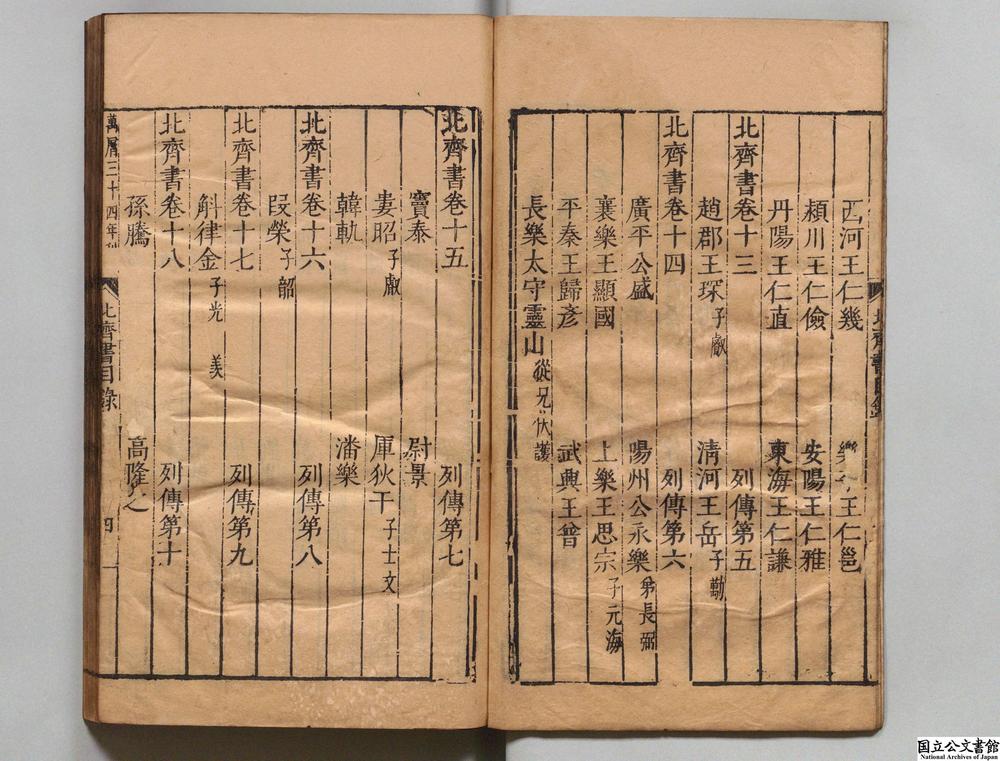 西河王仁幾 樂 王仁邕
潁川王仁儉 安陽王仁雅
丹陽王仁直 東海王仁謙
北齊書卷十三 列傳第五
趙郡王琛 子叡 清河王岳 子勱
北齊書卷十四 列傳第六
廣平公盛 陽州公永樂 弟長弼
襄樂王顯國 上樂王思宗 子元海
平秦王歸彥 武興王普
長樂太守靈山 從兄伏護
北齊書卷十五 列傳第七
竇泰 尉景
婁昭 子叡 厙狄干 子士文
韓軌 潘樂
北齊書卷十六 列傳第八
段榮 子韶
北齊書卷十七 列傳第九
斛律金 子光 羨
北齊書卷十八 列傳第十
孫騰 高隆之
北齊書目錄
萬曆三十四年刊
北齊書目錄 四
国立公文書館
National Archives of Japan